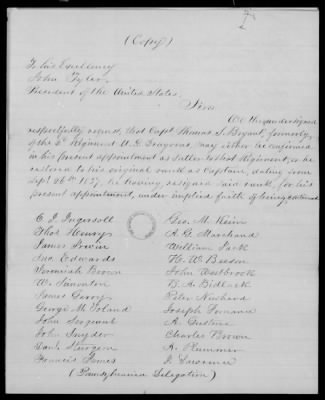 (Copy)
To his Excellency
John Tyler,
President of the United States,
Sir:
We the undersigned
respectfully request, that Capt. Thomas S. Bryant, formerly,
of the 2d Regiment U.S. Dragoons, may either be confirmed
in his present appointment as Sutler to that Regiment, or be
restored to his original rank as Captain, dating from
Sept. 26th 1837, he having resigned said rank, for his
present appointment, under implied faith of being continued.
C. J. Ingersoll
Thos Henry
James Irwin
Jno. Edwards
Jeremiah Brown
W. Simonton
James Gerry
George M. Toland
John Sergeant
John Snyder
Danl Sturgeon
Francis James
Geo. M. Keim
A. G. Marchand
William Jack
H. W. Beeson
John Westbrook
B. A. Bidlack
Peter Newhard
Joseph Fornance
A. Gustine
Charles Brown
A. Plummer
J. Lawrence
(Pennsylvania Delegation)